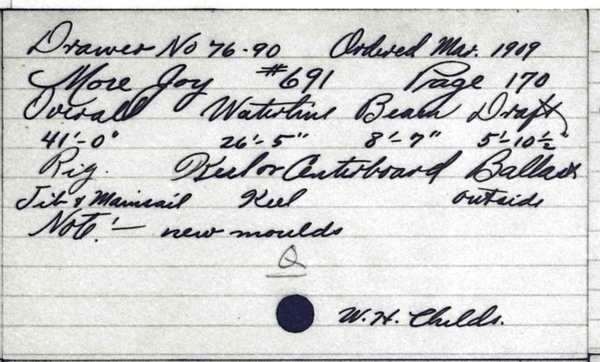 Drawer No 76-90 Ordered Mar. 1909
More Joy #691 Page 170
Overall Waterline Beam Draft
41'-0" 26'-5" 8'-7" 5'-10½"
Rig. Keel or Centerboard Ballast
Jib & Mainsail Keel outside
Note:- new moulds
Q
W. H. Childs.